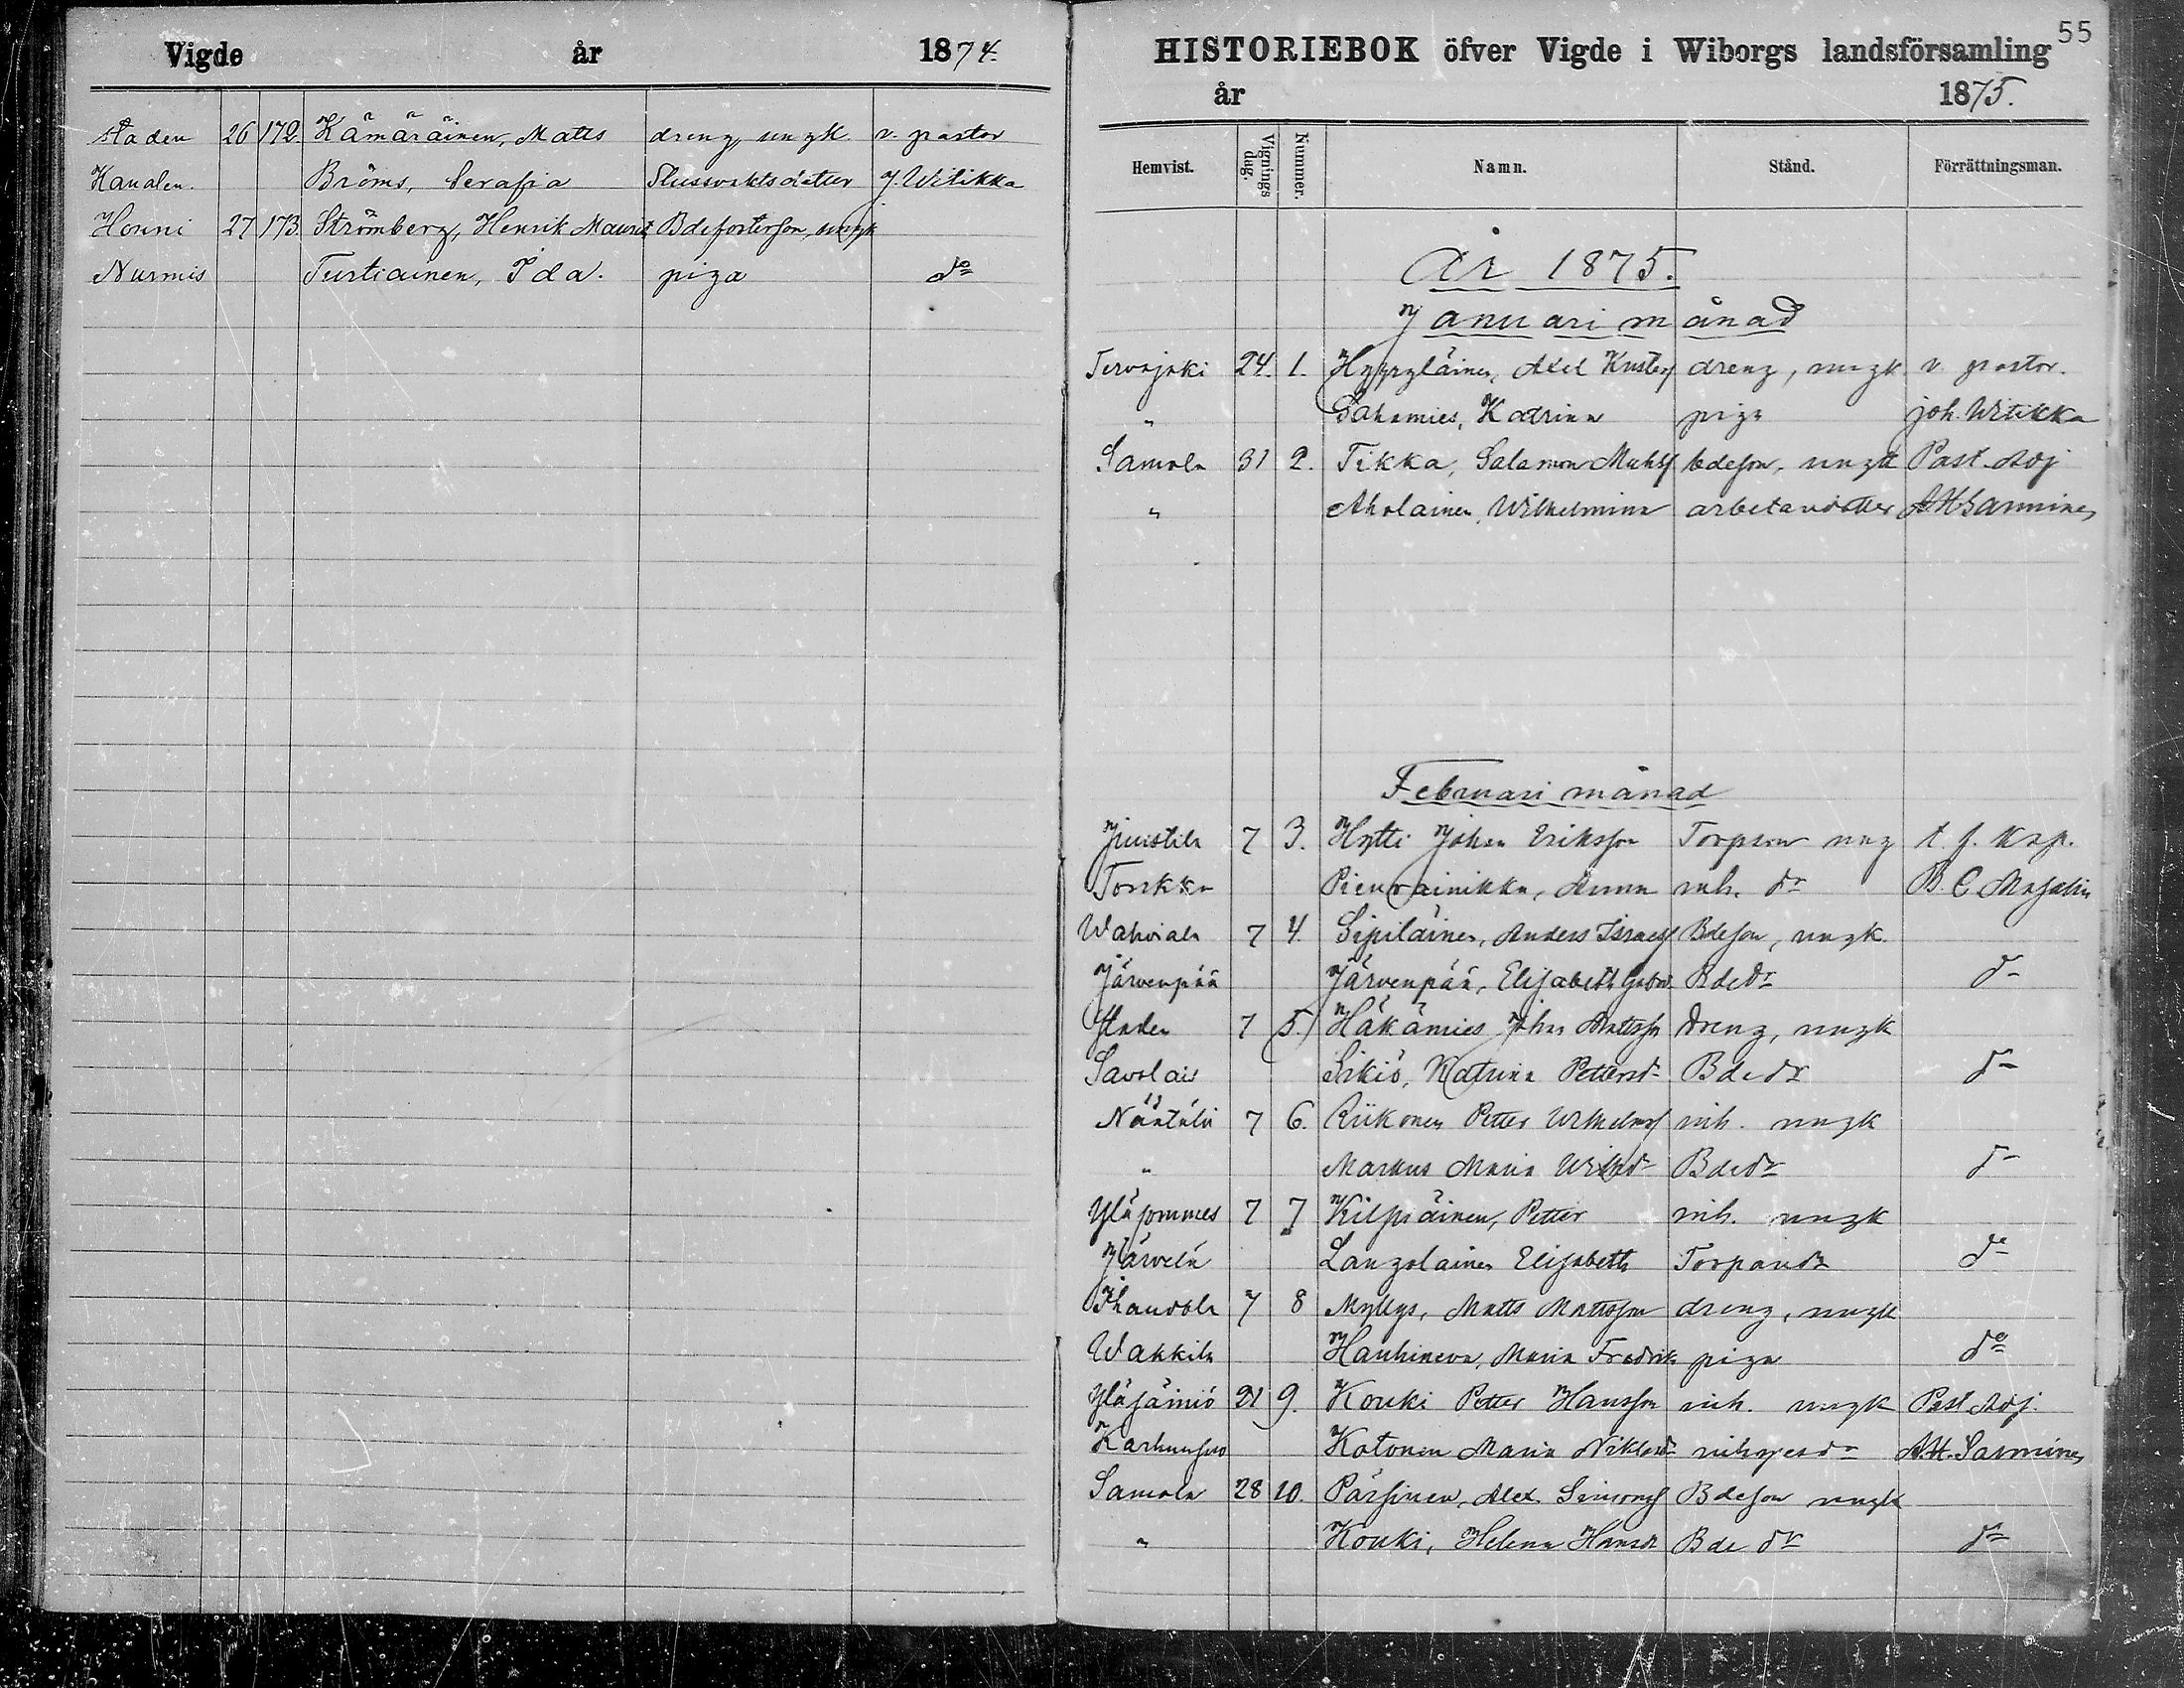 Vigde år 1874.
staden 26 172. Kämäräinen, Matts dreng, ungk. v. pastor
Kanalen. Bröms, Serafia Slussvaktsdotter J. Witikka
Honni 27 173 Strömberg, Henrik Maurit Bdefosterson, ungk
Nurmis Turtiainen, Ida. piga do
55
HISTORIEBOK öfver Vigde i Wiborgs landsförsamling
år 1875.
Hemvist. Vignings dag. Nummer. Namn. Stånd. Förrättningsman.
År 1875.
Januari månad
Tervajoki 24. 1. Hyyryläinen, Axel Kustaf dreng, ungk. v. pastor.
" Sahamies, Katrina piga joh. Witikka
Samola 31 2. Tikka, Salamon Mattsf bdeson, ungk Past. Adj
" Aholainen, Wilhelmina arbetaredotter A H Sarminen
Februari månad
Juustila 7 3. Hytti Johan Eriksson Torpson ung t. f. Kap.
Torikka Pieurainikka, Anna inh. dr B. C Majalin
Wahviala 7 4. Sipiläinen, Anders Israelsf Bdeson, ungk.
Järvenpää Järvenpää, Elisabeth Gabrd. Bdedr do
staden 7 5. Häkämies Johan Mattsson dreng, ungk
Savolais Sikiö, Katrina Pettersdr Bdedr do
Näätälä 7 6. Riikonen Petter Wilhelmsf inh. ungk
" Markus Maria Wilhdr Bdedr do
Yläsommes 7 7 Kilpiäinen, Petter inh. ungk
Järvelä Langolainen Elisabeth Torparedr do
Ihandola 7 8 Myllys, Matts Mattsson dreng, ungk
Wakkila Hanhineva, Maria Fredrik piga do
Yläsäiniö 21 9. Kouki Petter Hansson inh. ungk Past Adj.
Karhusuo Kotonen Maria Niklasdr inhysesdr A. H. Sarminen
Samola 28 10. Pärssinen, Alex Simonsf Bdeson ungk
" Kouki, Helena Hansdr Bde dr do